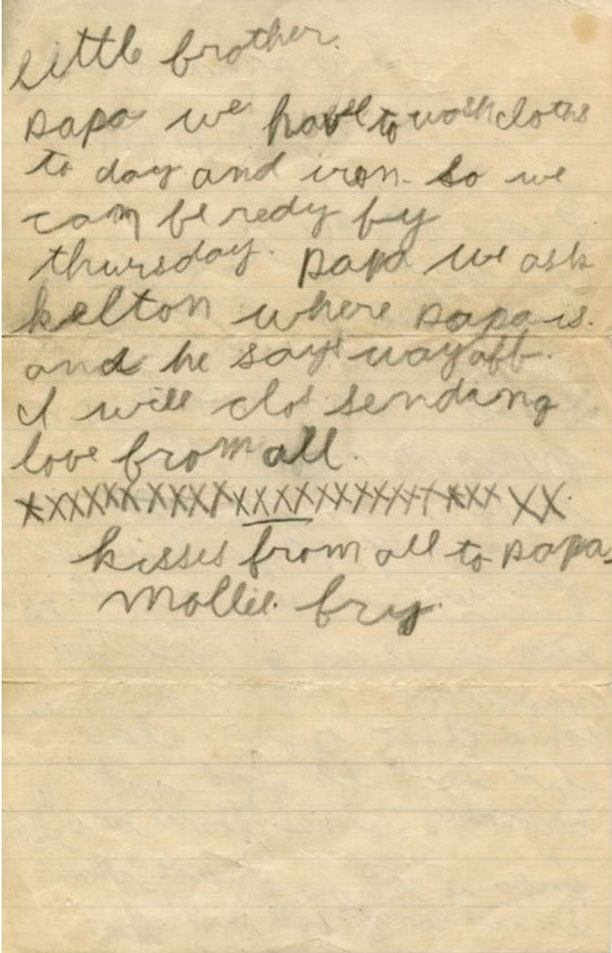 little brother.
papa we have to wash cloths
to day and iron. so we
can be redy by
thursday. papa we ask
kelton where papa is.
and he says way off.
I will clos sending
love from all.
xxxxxxxxxxxxxxxxxxxxxxxxxx xx.
kisses from all to papa.
mollie fry.